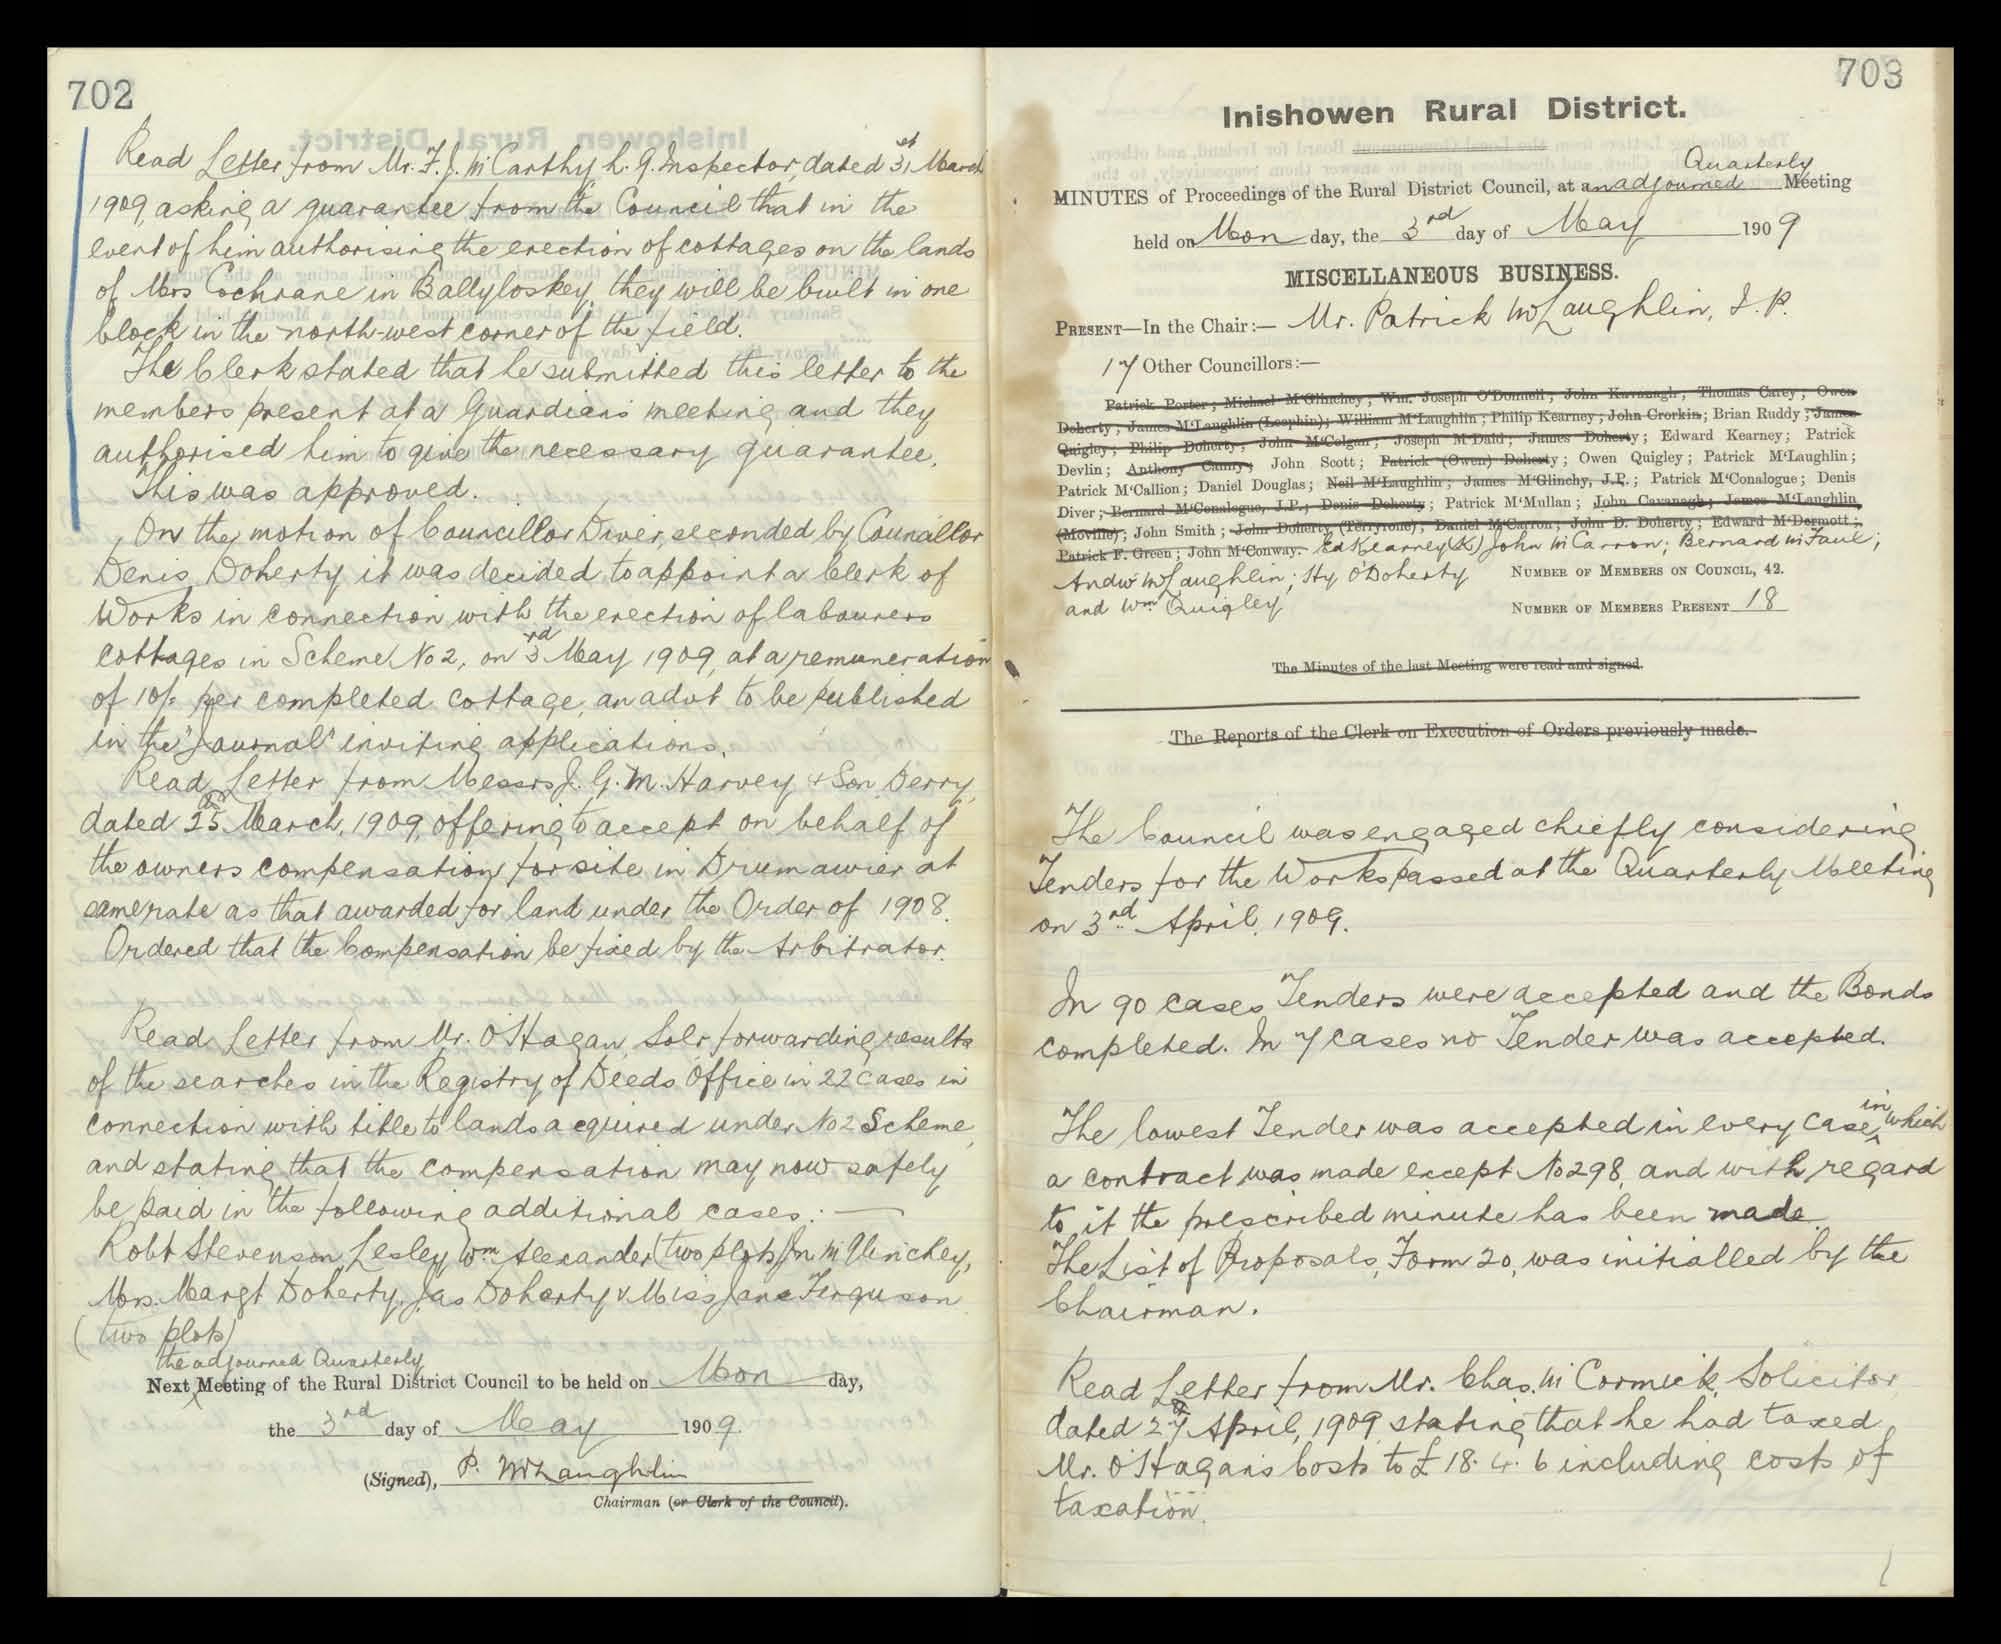 702
Read Letter from Mr. F. J. McCarthy L. G. Inspector, dated 31st March
1909, asking a guarantee from the Council that in the
event of him authorising the erection of cottages on the lands
of Mrs Cochrane in Ballyloskey, they will be built in one
block in the north-west corner of the field.
The Clerk stated that he submitted this letter to the
members present at a Guardians meeting and they
authorised him to give the necessary guarantee.
This was approved.
On the motion of Councillor Diver, seconded by Councillor
Denis Doherty it was decided to appoint a Clerk of
Works in connection with the erection of labourers
cottages in Scheme No 2, on 3rd May 1909, at a remuneration
of 10/- per completed cottage, an advt to be published
in the "Journal" inviting applications.
Read Letter from Messrs J. G. M. Harvey & Son Derry,
dated 25th March, 1909, offering to accept on behalf of
the owners compensation for site in Drumawier at
same rate as that awarded for land under the Order of 1908.
Ordered that the Compensation be fixed by the Arbitrator.
Read Letter from Mr. O'Hagan, Solr forwarding results
of the searches in the Registry of Deeds Office in 22 cases in
connection with title to lands acquired under No 2 Scheme,
and stating that the compensation may now safely
be paid in the following additional cases: —
Robt Stevenson Lesley, Wm Alexander (two plots) Jn McGlinchey,
Mrs. Margt Doherty, Jas Doherty & Miss Jane Ferguson
(two plots)
the adjourned Quarterly
Next Meeting of the Rural District Council to be held on Mon day,
the 3rd day of May 1909.
(Signed), P. McLaughlin
Chairman (or Clerk of the Council).
703
Inishowen Rural District.
Quarterly
MINUTES of Proceedings of the Rural District Council, at an adjourned Meeting
held on Mon day, the 3rd day of May 1909
MISCELLANEOUS BUSINESS.
PRESENT—In the Chair:— Mr. Patrick McLaughlin, J.P.
17 Other Councillors:—
Patrick Porter; Michael M'Glinchey; Wm. Joseph O'Donnell; John Kavanagh; Thomas Carey; Owen
Doherty; James M'Laughlin (Leephin); William M'Laughlin; Philip Kearney; John Crorkin; Brian Ruddy; James
Quigley; Philip Doherty; John M'Colgan; Joseph M'Daid; James Doherty; Edward Kearney; Patrick
Devlin; Anthony Canny; John Scott; Patrick (Owen) Doherty; Owen Quigley; Patrick M'Laughlin;
Patrick M'Callion; Daniel Douglas; Neil M'Laughlin; James M'Glinchy, J.P.; Patrick M'Conalogue; Denis
Diver; Bernard M'Conalogue, J.P.; Denis Doherty; Patrick M'Mullan; John Cavanagh; James M'Laughlin
(Moville); John Smith; John Doherty (Terryrone); Daniel M'Carron; John D. Doherty; Edward M'Dermott;
Patrick F. Green; John M'Conway. Ed Kearney (K) John McCarron; Bernard McFaul;
Andw McLaughlin; Hy O'Doherty NUMBER OF MEMBERS ON COUNCIL, 42.
and Wm Quigley NUMBER OF MEMBERS PRESENT 18
The Minutes of the last Meeting were read and signed.
The Reports of the Clerk on Execution of Orders previously made.
The Council was engaged chiefly considering
Tenders for the Works passed at the Quarterly Meeting
on 3rd April, 1909.
In 90 cases Tenders were accepted and the Bonds
completed. In 7 cases no Tender was accepted.
The lowest Tender was accepted in every case in which
a contract was made except No 298, and with regard
to it the prescribed minute has been made.
The List of Proposals, Form 20, was initialled by the
Chairman.
Read Letter from Mr. Chas. McCormick, Solicitor
dated 27th April, 1909 stating that he had taxed
Mr. O'Hagan's Costs to £18. 4. 6 including costs of
taxation.